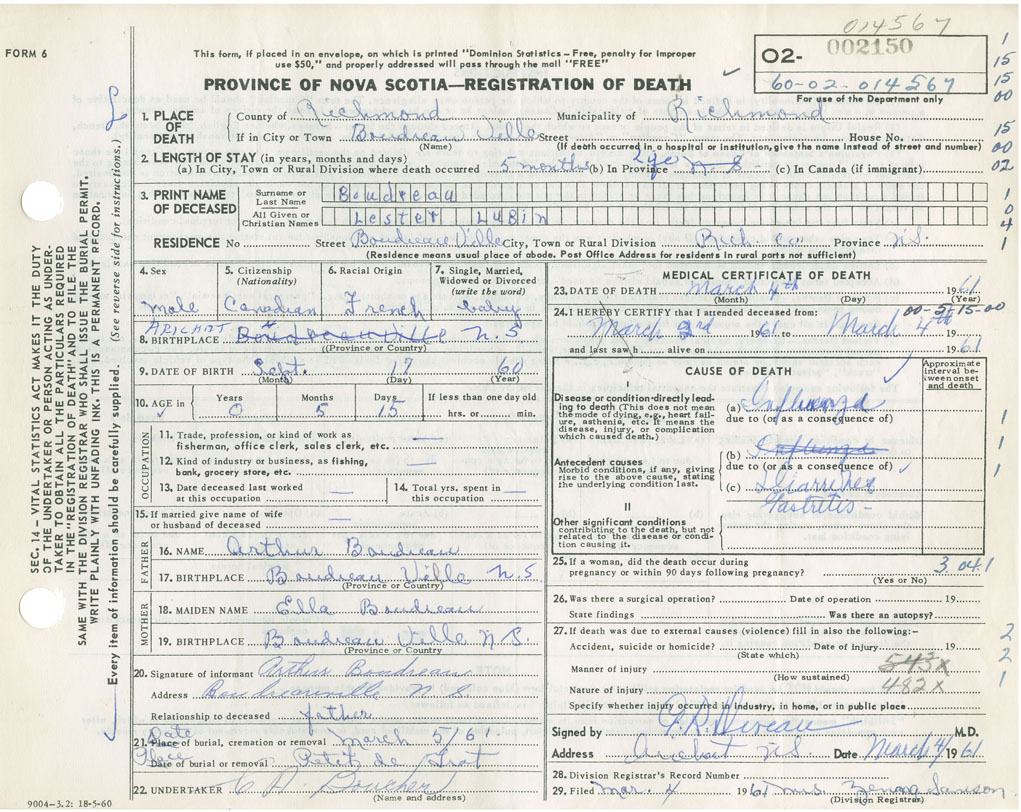 014567
FORM 6
This form, if placed in an envelope, on which is printed "Dominion Statistics – Free, penalty for improper
use $50," and properly addressed will pass through the mail "FREE"
PROVINCE OF NOVA SCOTIA—REGISTRATION OF DEATH
02- 002150
60-02-014567
For use of the Department only
1. PLACE OF DEATH
County of Richmond Municipality of Richmond
If in City or Town Boudreau Ville Street House No.
(Name) (If death occurred in a hospital or institution, give the name instead of street and number)
2. LENGTH OF STAY (in years, months and days)
(a) In City, Town or Rural Division where death occurred 5 months (b) In Province N S (c) In Canada (if immigrant)
3. PRINT NAME OF DECEASED
Surname or Last Name Boudreau
All Given or Christian Names Lester Lubin
RESIDENCE No Street Boudreau Ville City, Town or Rural Division Rich. Co Province N.S.
(Residence means usual place of abode. Post Office Address for residents in rural parts not sufficient)
4. Sex
male
5. Citizenship
(Nationality)
Canadian
6. Racial Origin
French
7. Single, Married, Widowed or Divorced
(write the word)
baby
ARICHAT
8. BIRTHPLACE Boudreauville N.S
(Province or Country)
9. DATE OF BIRTH Sept. 17 60
(Month) (Day) (Year)
10. AGE in
Years Months Days If less than one day old
0 5 15 hrs. or min.
OCCUPATION
11. Trade, profession, or kind of work as fisherman, office clerk, sales clerk, etc. —
12. Kind of industry or business, as fishing, bank, grocery store, etc. —
13. Date deceased last worked at this occupation —
14. Total yrs. spent in this occupation —
15. If married give name of wife or husband of deceased —
FATHER
16. NAME Arthur Boudreau
17. BIRTHPLACE Boudreau Ville N.S
(Province or Country)
MOTHER
18. MAIDEN NAME Ella Boudreau
19. BIRTHPLACE Boudreau Ville N S.
(Province or Country
20. Signature of informant Arthur Boudreau
Address Boudreauville N S
Relationship to deceased father
21. Date Place of burial, cremation or removal march 5/61
Place Date of burial or removal Petit de Grat
22. UNDERTAKER C H Boucher
(Name and address)
9004-3.2: 18-5-60
MEDICAL CERTIFICATE OF DEATH
23. DATE OF DEATH March 4th 1961
(Month) (Day) (Year)
24. I HEREBY CERTIFY that I attended deceased from: 00-5-15-00
March 3rd 1961 to March 4th 19
and last saw h alive on 1961
CAUSE OF DEATH
Approximate interval between onset and death
I
Disease or condition directly leading to death (This does not mean the mode of dying, e.g., heart failure, asthenia, etc. It means the disease, injury, or complication which caused death.)
(a) Influenza
due to (or as a consequence of)
Antecedent causes
Morbid conditions, if any, giving rise to the above cause, stating the underlying condition last.
(b) Influenza
due to (or as a consequence of)
(c) Diarrhea
Gastritis -
II
Other significant conditions contributing to the death, but not related to the disease or condition causing it.
25. If a woman, did the death occur during pregnancy or within 90 days following pregnancy?
3.04.1
(Yes or No)
26. Was there a surgical operation? Date of operation 19
State findings Was there an autopsy?
27. If death was due to external causes (violence) fill in also the following:-
Accident, suicide or homicide? Date of injury 19
(State which)
Manner of injury 543x
(How sustained)
Nature of injury 482x
Specify whether injury occurred in industry, in home, or in public place
Signed by M.D.
Address Arichat N S Date March 4/1961
28. Division Registrar's Record Number
29. Filed Mar. 4 1961 Mrs. Zenong Samson
(Division Registrar)
SEC. 14 – VITAL STATISTICS ACT MAKES IT THE DUTY
OF THE UNDERTAKER OR PERSON ACTING AS UNDER-
TAKER TO OBTAIN ALL THE PARTICULARS REQUIRED
IN THE "REGISTRATION OF DEATH" AND TO FILE THE
SAME WITH THE DIVISION REGISTRAR WHO SHALL ISSUE THE BURIAL PERMIT.
WRITE PLAINLY WITH UNFADING INK. THIS IS A PERMANENT RECORD.
Every item of information should be carefully supplied. (See reverse side for instructions.)
1
15
15
00
15
00
02
1
0
4
1
1
1
1
2
2
1